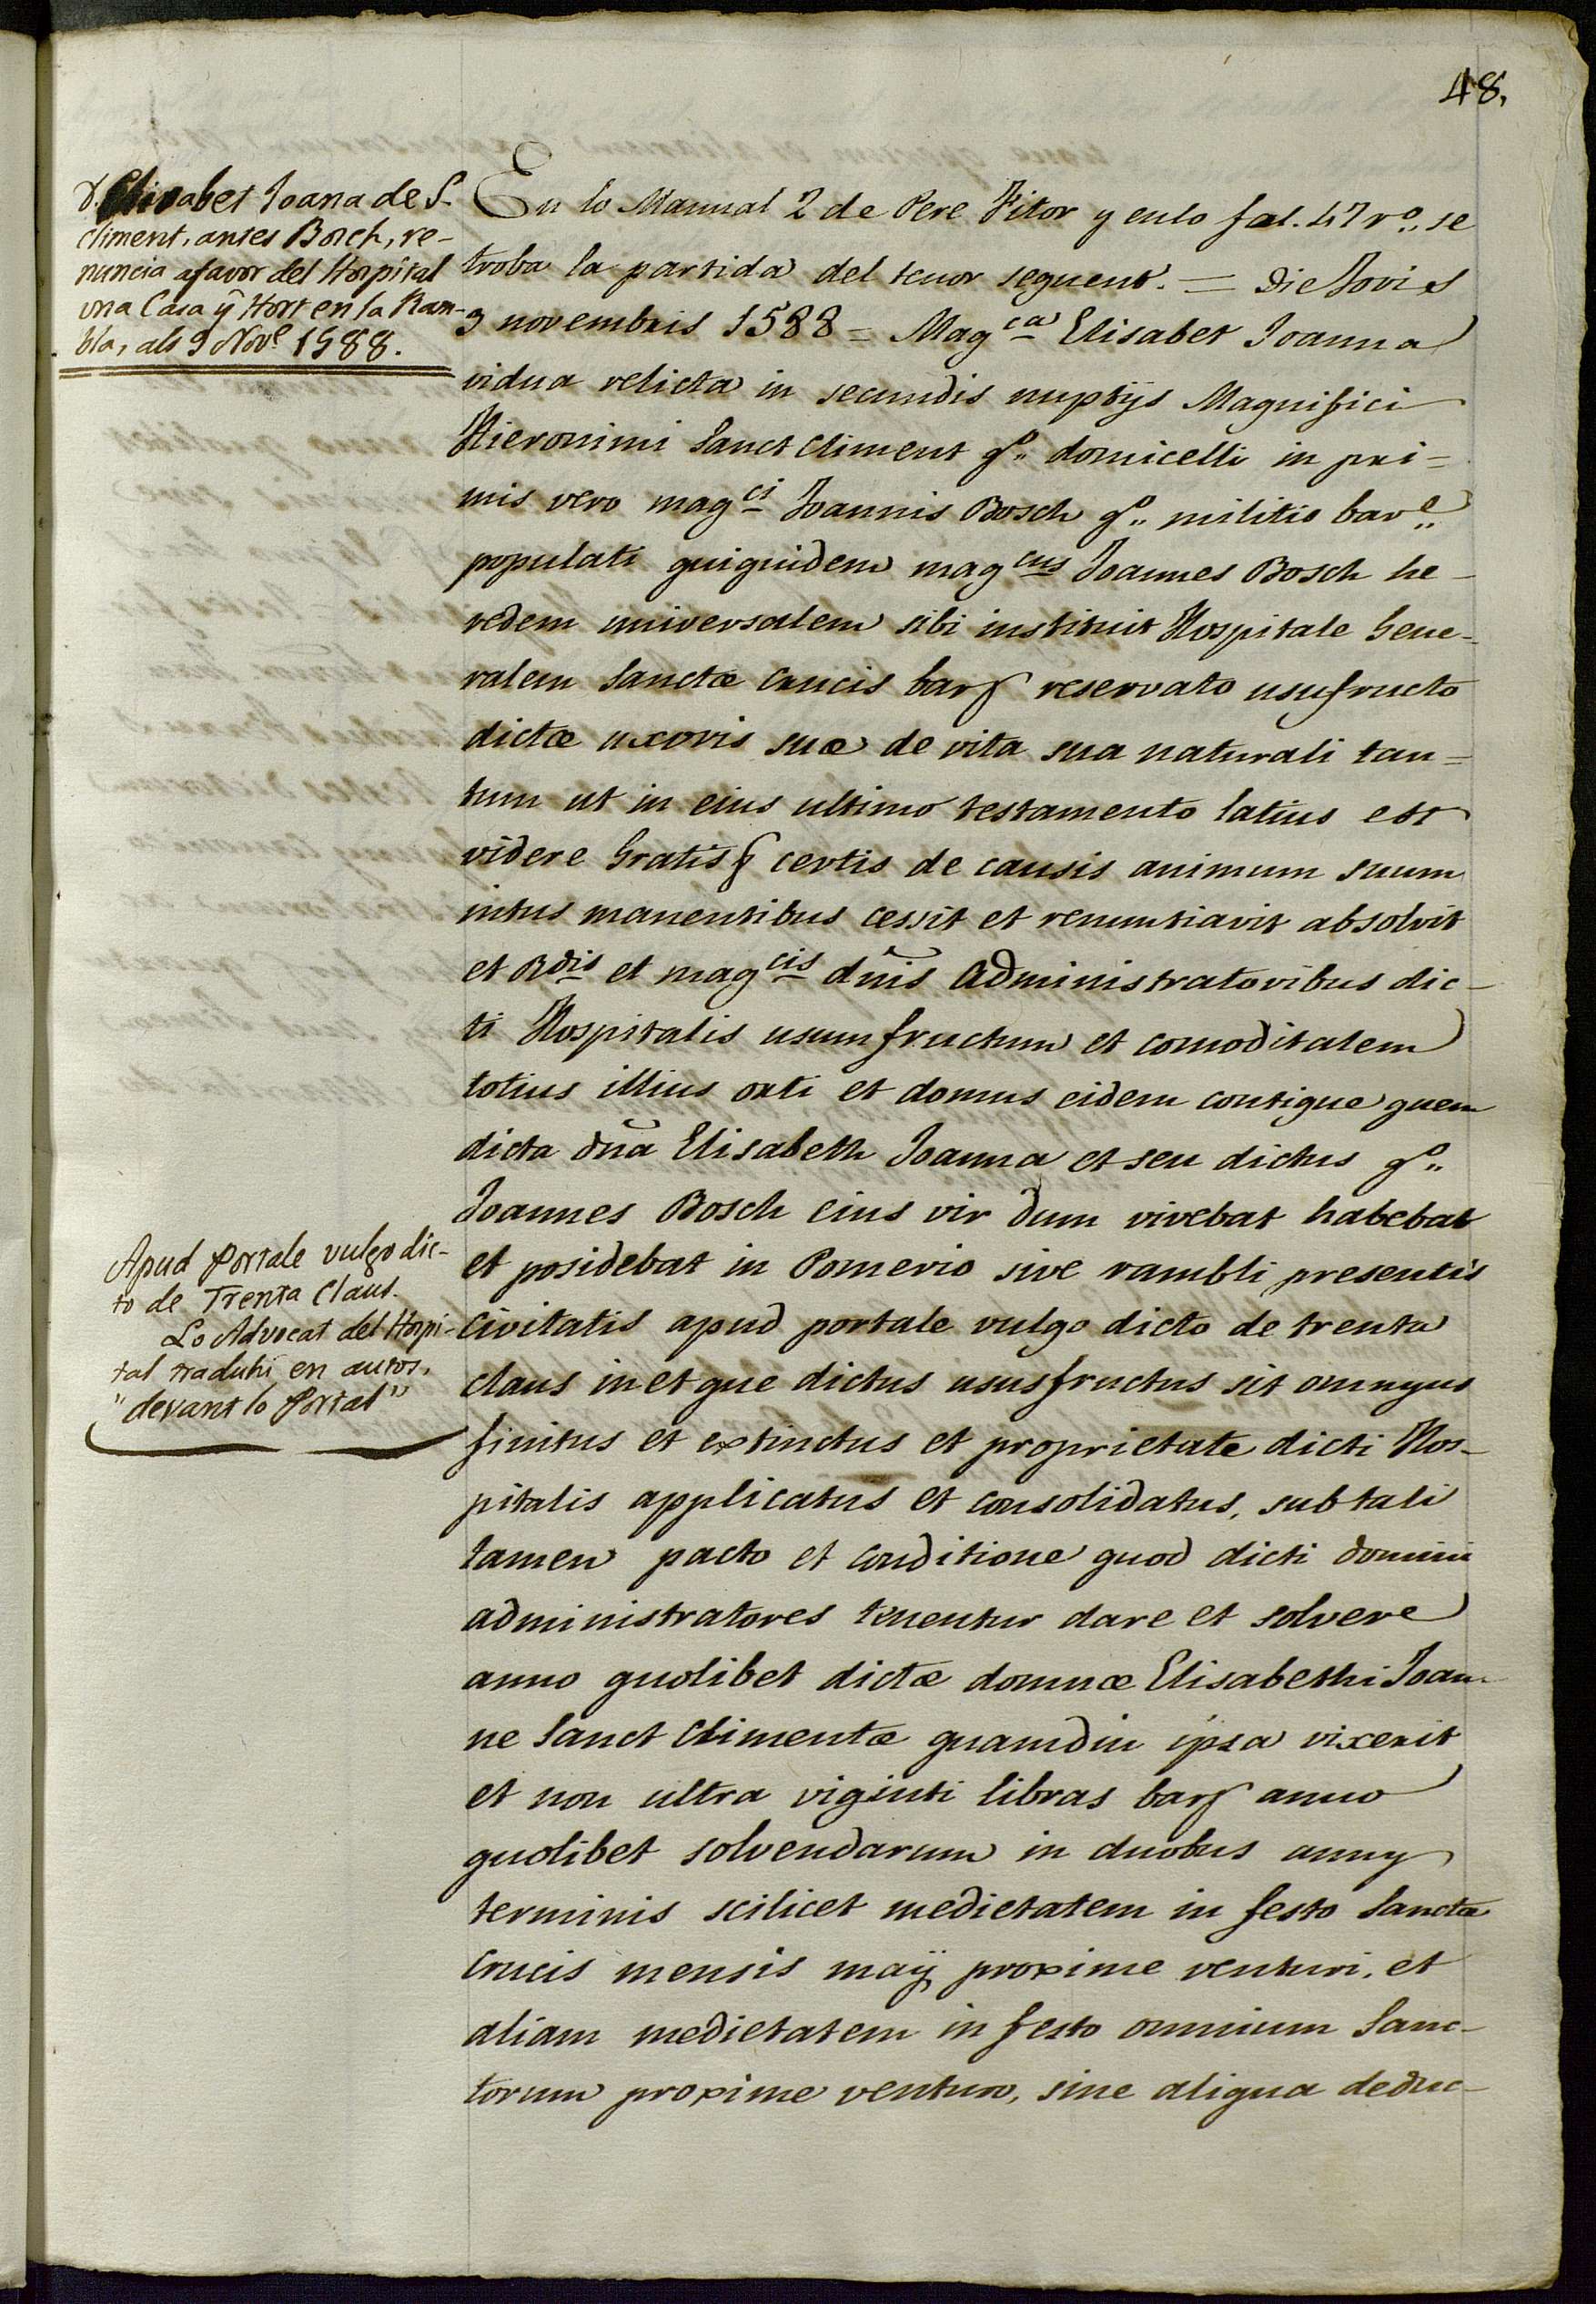 48,
D. Elisabet Joana de S.
Climent, antes Bosch, re-
nuncia afavor del Hospital
una Casa y Hort en la Ram-
bla, als 9 Nov.e 1588.
En lo Manual 2 de Pere Fitor y en lo fol. 47 r.o, se
troba la partida del tenor seguent. = Die Jovis
9 novembris 1588 = Mag.ca Elisabet Joanna
vidua relicta in secundis nuptijs Magnifici
Hieronimi Sanct Climent q.o domicelli in pri=
mis vero mag.ci Joannis Bosch q.o militis bar.e
populati quiquidem mag.cus Joannes Bosch he-
redem universalem sibi instituit Hospitale Gene-
ralem Sanctæ Crucis bar. reservato usufructo
dictæ uxoris suæ de vita sua naturali tan=
tum ut in eius ultimo testamento latius est
videre Gratis certis de causis animum suum
intus manentibus cessit et renuntiavit absolvit
et Rdis et magcis dñis Administratoribus dic-
ti Hospitalis usumfructum et comoditatem
totius illius orti et domus eidem contigue quem
dicta dña Elisabeth Joanna et seu dictus q.o
Joannes Bosch eius vir dum vivebat habebat
et posidebat in Pomerio sive rambli presentis
Civitatis apud portale vulgo dicto de trenta
claus in et que dictus ususfructus sit omnyus
finitus et extinctus et proprietate dicti Hos-
pitalis applicatus et consolidatus, sub tali
tamen pacto et conditione quod dicti domini
administratores tenentur dare et solvere
anno quolibet dictæ domnæ Elisabethi Joan-
ne Sanct Climentæ quamdiu ipsa vixerit
et non ultra viginti libras bar. anno
quolibet solvendarum in duobus anny
terminis scilicet medietatem in festo Sanctæ
Crucis mensis maÿ proxime venturi, et
aliam medietatem in festo omnium Sanc-
torum proxime venturo, sine aliqua deduc-
Apud Portale vulgo dic-
to de Trenta Claus.
Lo Advocat del Hospi-
tal traduhí en autos,
"devant lo Portal"